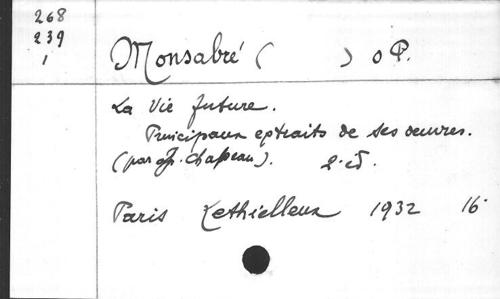 268
239
1
Monsabré ( ) O P.
La Vie future.
Principaux extraits de ses oeuvres.
(par Chapeau). 2e éd.
Paris Lethielleux 1932 16